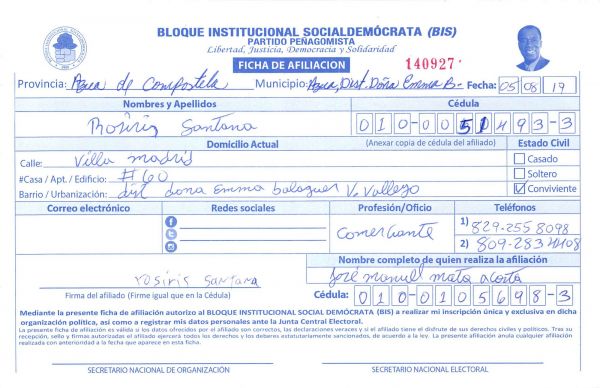 BLOQUE INSTITUCIONAL SOCIALDEMÓCRATA (BIS)
PARTIDO PEÑAGOMISTA
Libertad, Justicia, Democracia y Solidaridad
FICHA DE AFILIACION
140927
Provincia: Azua de Compostela Municipio: Azua, Dist. Doña Emma B. Fecha: 05 08 19
Nombres y Apellidos
Cédula
Rosiris Santana
010-0051493-3
Domicilio Actual
(Anexar copia de cédula del afiliado)
Estado Civil
Calle: Villa madrid
Casado
#Casa / Apt. / Edificio: #60
Soltero
Barrio / Urbanización: dist dona Emma balaguer V. Vallejo
Conviviente
Correo electrónico
Redes sociales
Profesión/Oficio
Teléfonos
Comerciante
1) 829-255 8098
2) 809-283 4408
Nombre completo de quien realiza la afiliación
rosiris santana
José manuel mata acosta
Firma del afiliado (Firme igual que en la Cédula)
Cédula: 010-0105698-3
Mediante la presente ficha de afiliación autorizo al BLOQUE INSTITUCIONAL SOCIAL DEMÓCRATA (BIS) a realizar mi inscripción única y exclusiva en dicha
organización política, asi como a registrar mis datos personales ante la Junta Central Electoral.
La presente ficha de afiliación es válida si los datos ofrecidos por el afiliado son correctos, las declaraciones veraces y si el afiliado tiene el disfrute de sus derechos civiles y políticos. Tras su
recepción, sello y firmas autorizadas el afiliado ejercerá todos los derechos y los deberes estatutariamente sancionados, de acuerdo a la ley. La presente afiliación anula cualquier afiliación
realizada con anterioridad a la fecha que aparece en esta ficha.
SECRETARIO NACIONAL DE ORGANIZACIÓN
SECRETARIO NACIONAL ELECTORAL